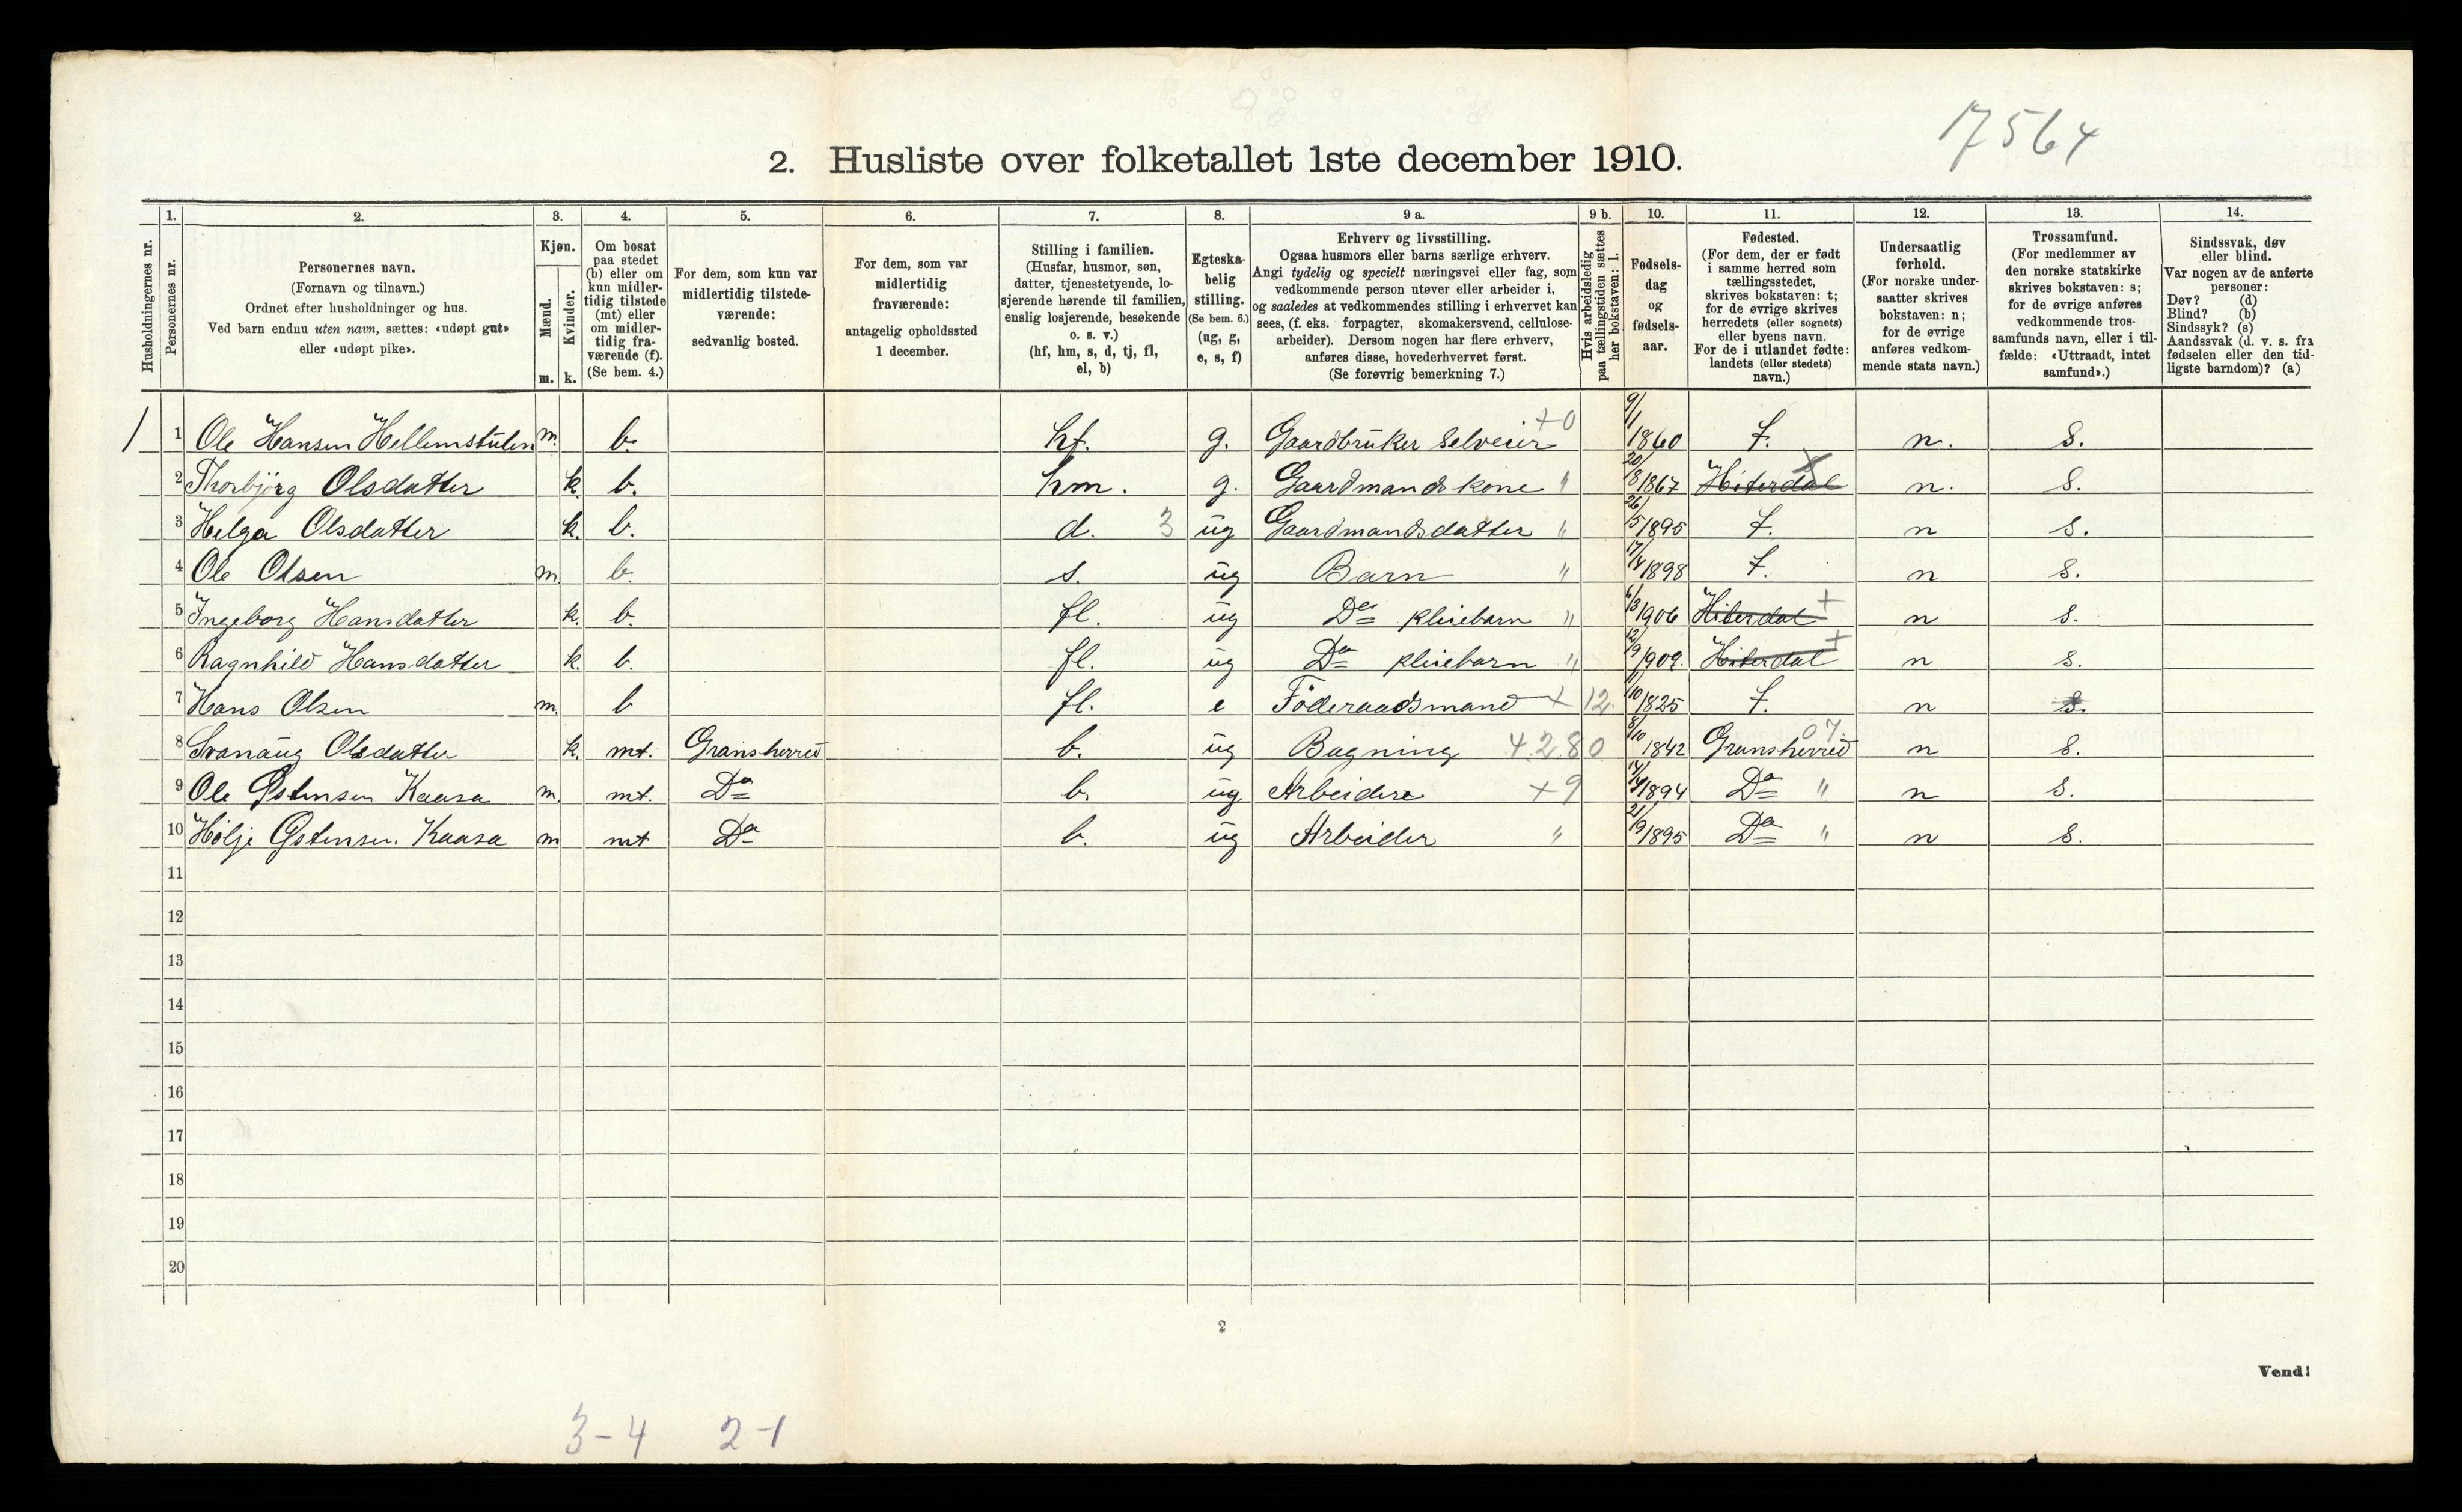 17564
2. Husliste over folketallet 1ste december 1910.
1. 2. 3. 4. 5. 6. 7. 8. 9 a. 9 b. 10. 11. 12. 13. 14.
Husholdningernes nr.
Personernes nr.
Personernes navn.
(Fornavn og tilnavn.)
Ordnet efter husholdninger og hus.
Ved barn endnu uten navn, sættes: «udøpt gut»
eller «udøpt pike».
Kjøn.
Mænd.
Kvinder.
m. k.
Om bosat
paa stedet
(b) eller om
kun midler-
tidig tilstede
(mt) eller
om midler-
tidig fra-
værende (f).
(Se bem. 4.)
For dem, som kun var
midlertidig tilstede-
værende:
sedvanlig bosted.
For dem, som var
midlertidig
fraværende:
antagelig opholdssted
1 december.
Stilling i familien.
(Husfar, husmor, søn,
datter, tjenestetyende, lo-
sjerende hørende til familien,
enslig losjerende, besøkende
o. s. v.)
(hf, hm, s, d, tj, fl,
el, b)
Egteska-
belig
stilling.
(Se bem. 6.)
(ug, g,
e, s, f)
Erhverv og livsstilling.
Ogsaa husmors eller barns særlige erhverv.
Angi tydelig og specielt næringsvei eller fag, som
vedkommende person utøver eller arbeider i,
og saaledes at vedkommendes stilling i erhvervet kan
sees, (f. eks. forpagter, skomakersvend, cellulose-
arbeider). Dersom nogen har flere erhverv,
anføres disse, hovederhvervet først.
(Se forøvrig bemerkning 7.)
Hvis arbeidsledig
paa tællingstiden sættes
her bokstaven: l.
Fødsels-
dag
og
fødsels-
aar.
Fødested.
(For dem, der er født
i samme herred som
tællingsstedet,
skrives bokstaven: t;
for de øvrige skrives
herredets (eller sognets)
eller byens navn.
For de i utlandet fødte:
landets (eller stedets)
navn.)
Undersaatlig
forhold.
(For norske under-
saatter skrives
bokstaven: n;
for de øvrige
anføres vedkom-
mende stats navn.)
Trossamfund.
(For medlemmer av
den norske statskirke
skrives bokstaven: s;
for de øvrige anføres
vedkommende tros-
samfunds navn, eller i til-
fælde: «Uttraadt, intet
samfund».)
Sindssvak, døv
eller blind.
Var nogen av de anførte
personer:
Døv? (d)
Blind? (b)
Sindssyk? (s)
Aandssvak (d. v. s. fra
fødselen eller den tid-
ligste barndom)? (a)
1 1 Ole Hansen Hellemstulen m. b. hf. g. Gaardbruker Selveier +0 9/1 1860 t. n. s.
2 Thorbjörg Olsdatter k. b. hm. g. Gaardmandskone " 20/8 1867 Hiterdal + n. s.
3 Helga Olsdatter k. b. d. 3 ug Gaardmandsdatter " 26/5 1895 t. n s.
4 Ole Olsen m b. s. ug Barn " 17/4 1898 t. n s.
5 Ingeborg Hansdatter k. b. fl. ug Do pleiebarn " 6/3 1906 Hiterdal + n s.
6 Ragnhild Hansdatter k. b. fl. ug Do pleiebarn " 12/9 1909. Hiterdal + n s.
7 Hans Olsen m. b fl. e Föderaadsmand + 12 /10 1825 t. n s.
8 Svanaug Olsdatter k. mt. Gransherred b. ug Bagning 4.280 8/10 1842 Gransherred 07 n s.
9 Ole Østensen Kaasa m. mt. Do b. ug Arbeidere +9 14/4 1894 Do " n s.
10 Hölje Østensen Kaasa m mt Do b. ug Arbeider " 21/9 1895 Do " n s.
11
12
13
14
15
16
17
18
19
20
2
Vend!
3-4 2-1